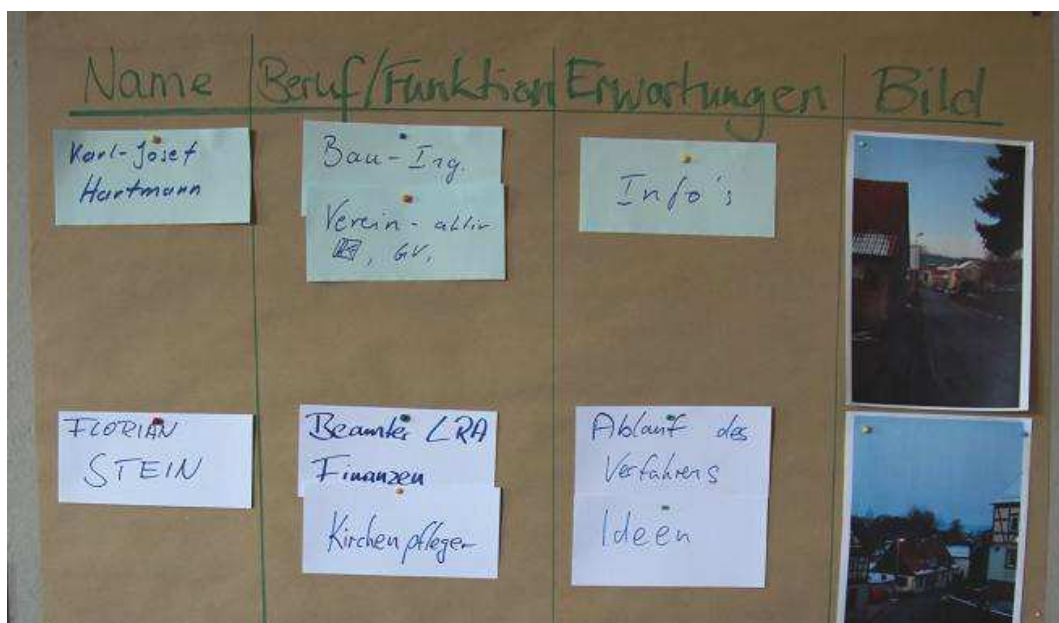 Name Beruf/Funktion Erwartungen Bild
Karl-Josef
Hartmann
Bau-Ing.
Verein-aktiv
, GV,
Info's
FLORIAN
STEIN
Beamter LRA
Finanzen
Kirchenpfleger
Ablauf des
Verfahrens
Ideen